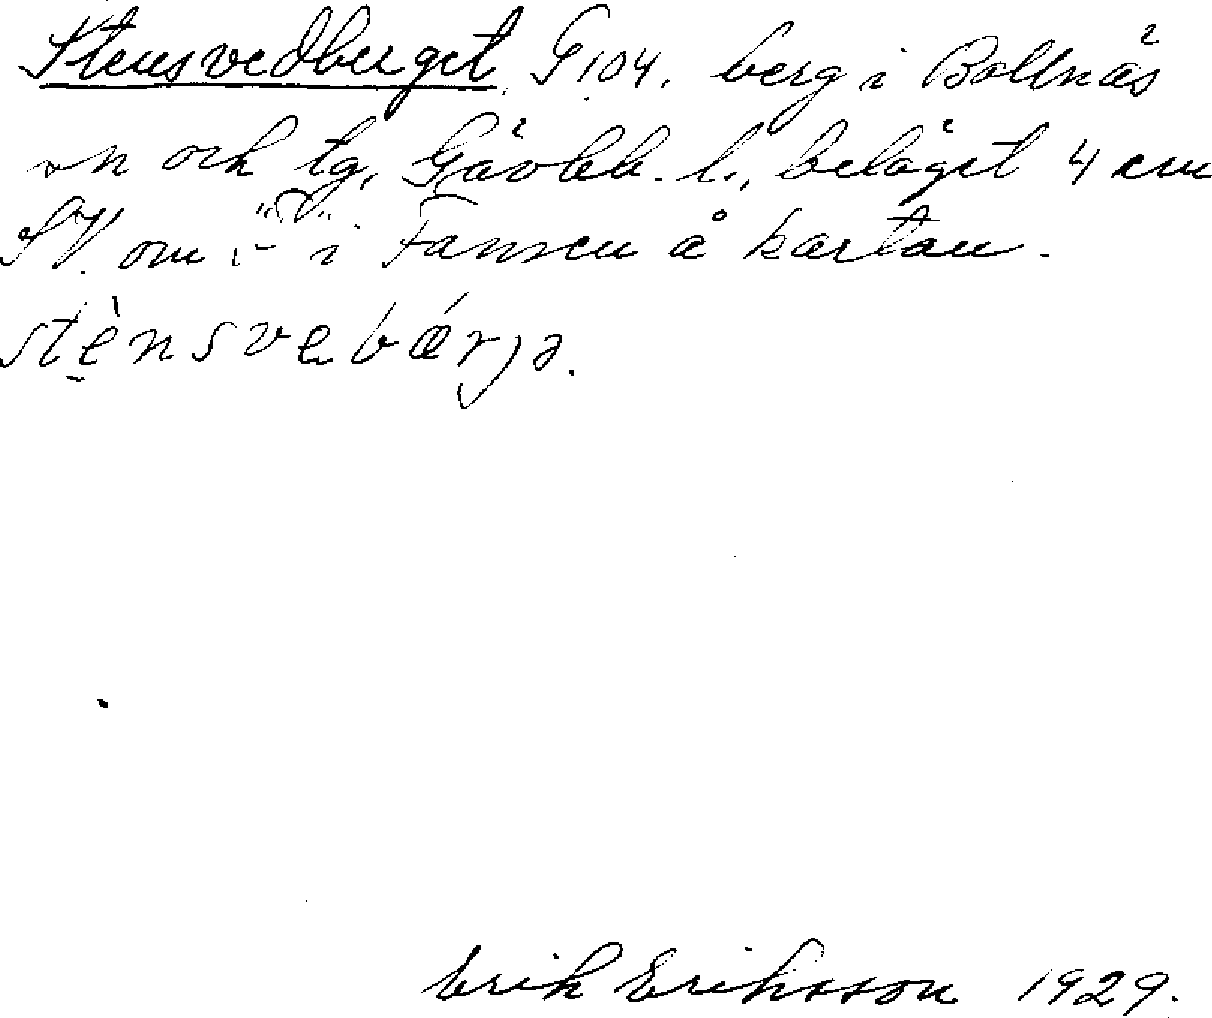 Stensvedberget G104. berg i Bollnäs
sn och tg, Gävleb. l., beläget 4 cm
SV. om i Fansen å kartan.
stènsvebárjə.
Erik Eriksson 1929.